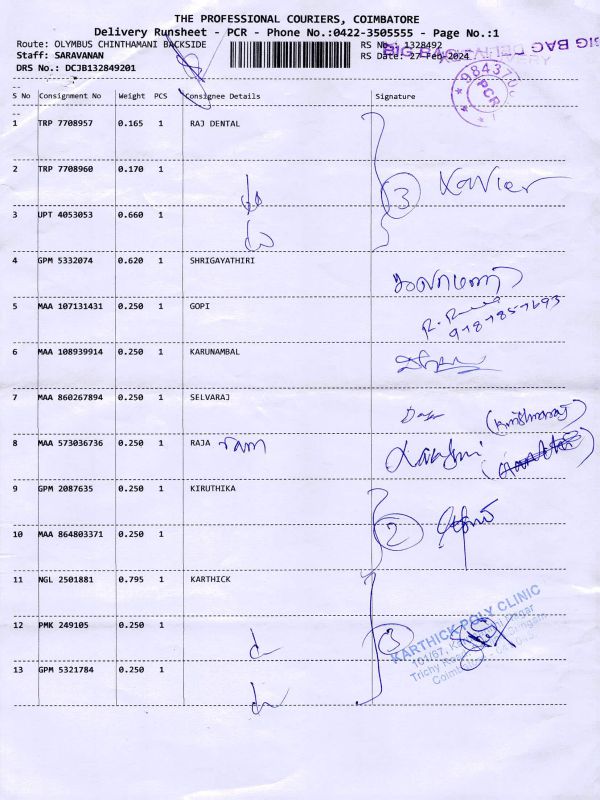 THE PROFESSIONAL COURIERS, COIMBATORE
Delivery Runsheet - PCR - Phone No.:0422-3505555 - Page No.:1
Route: OLYMBUS CHINTHAMANI BACKSIDE RS No.: 1328492
Staff: SARAVANAN RS Date: 27-Feb-2024
DRS No.: DCJB132849201
BIG BAG DELIVERY
PCR
S No Consignment No Weight PCS Consignee Details Signature
1 TRP 7708957 0.165 1 RAJ DENTAL
2 TRP 7708960 0.170 1
3 Xavier
3 UPT 4053053 0.660 1
4 GPM 5332074 0.620 1 SHRIGAYATHIRI
5 MAA 107131431 0.250 1 GOPI
9787857693
6 MAA 108939914 0.250 1 KARUNAMBAL
7 MAA 860267894 0.250 1 SELVARAJ
8 MAA 573036736 0.250 1 RAJA ram
9 GPM 2087635 0.250 1 KIRUTHIKA
2
10 MAA 864803371 0.250 1
11 NGL 2501881 0.795 1 KARTHICK
12 PMK 249105 0.250 1
3
KARTHICK POLY CLINIC
13 GPM 5321784 0.250 1